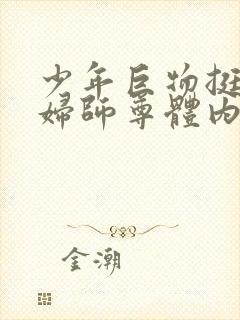 少年巨物挺
婦師尊體內
金潮